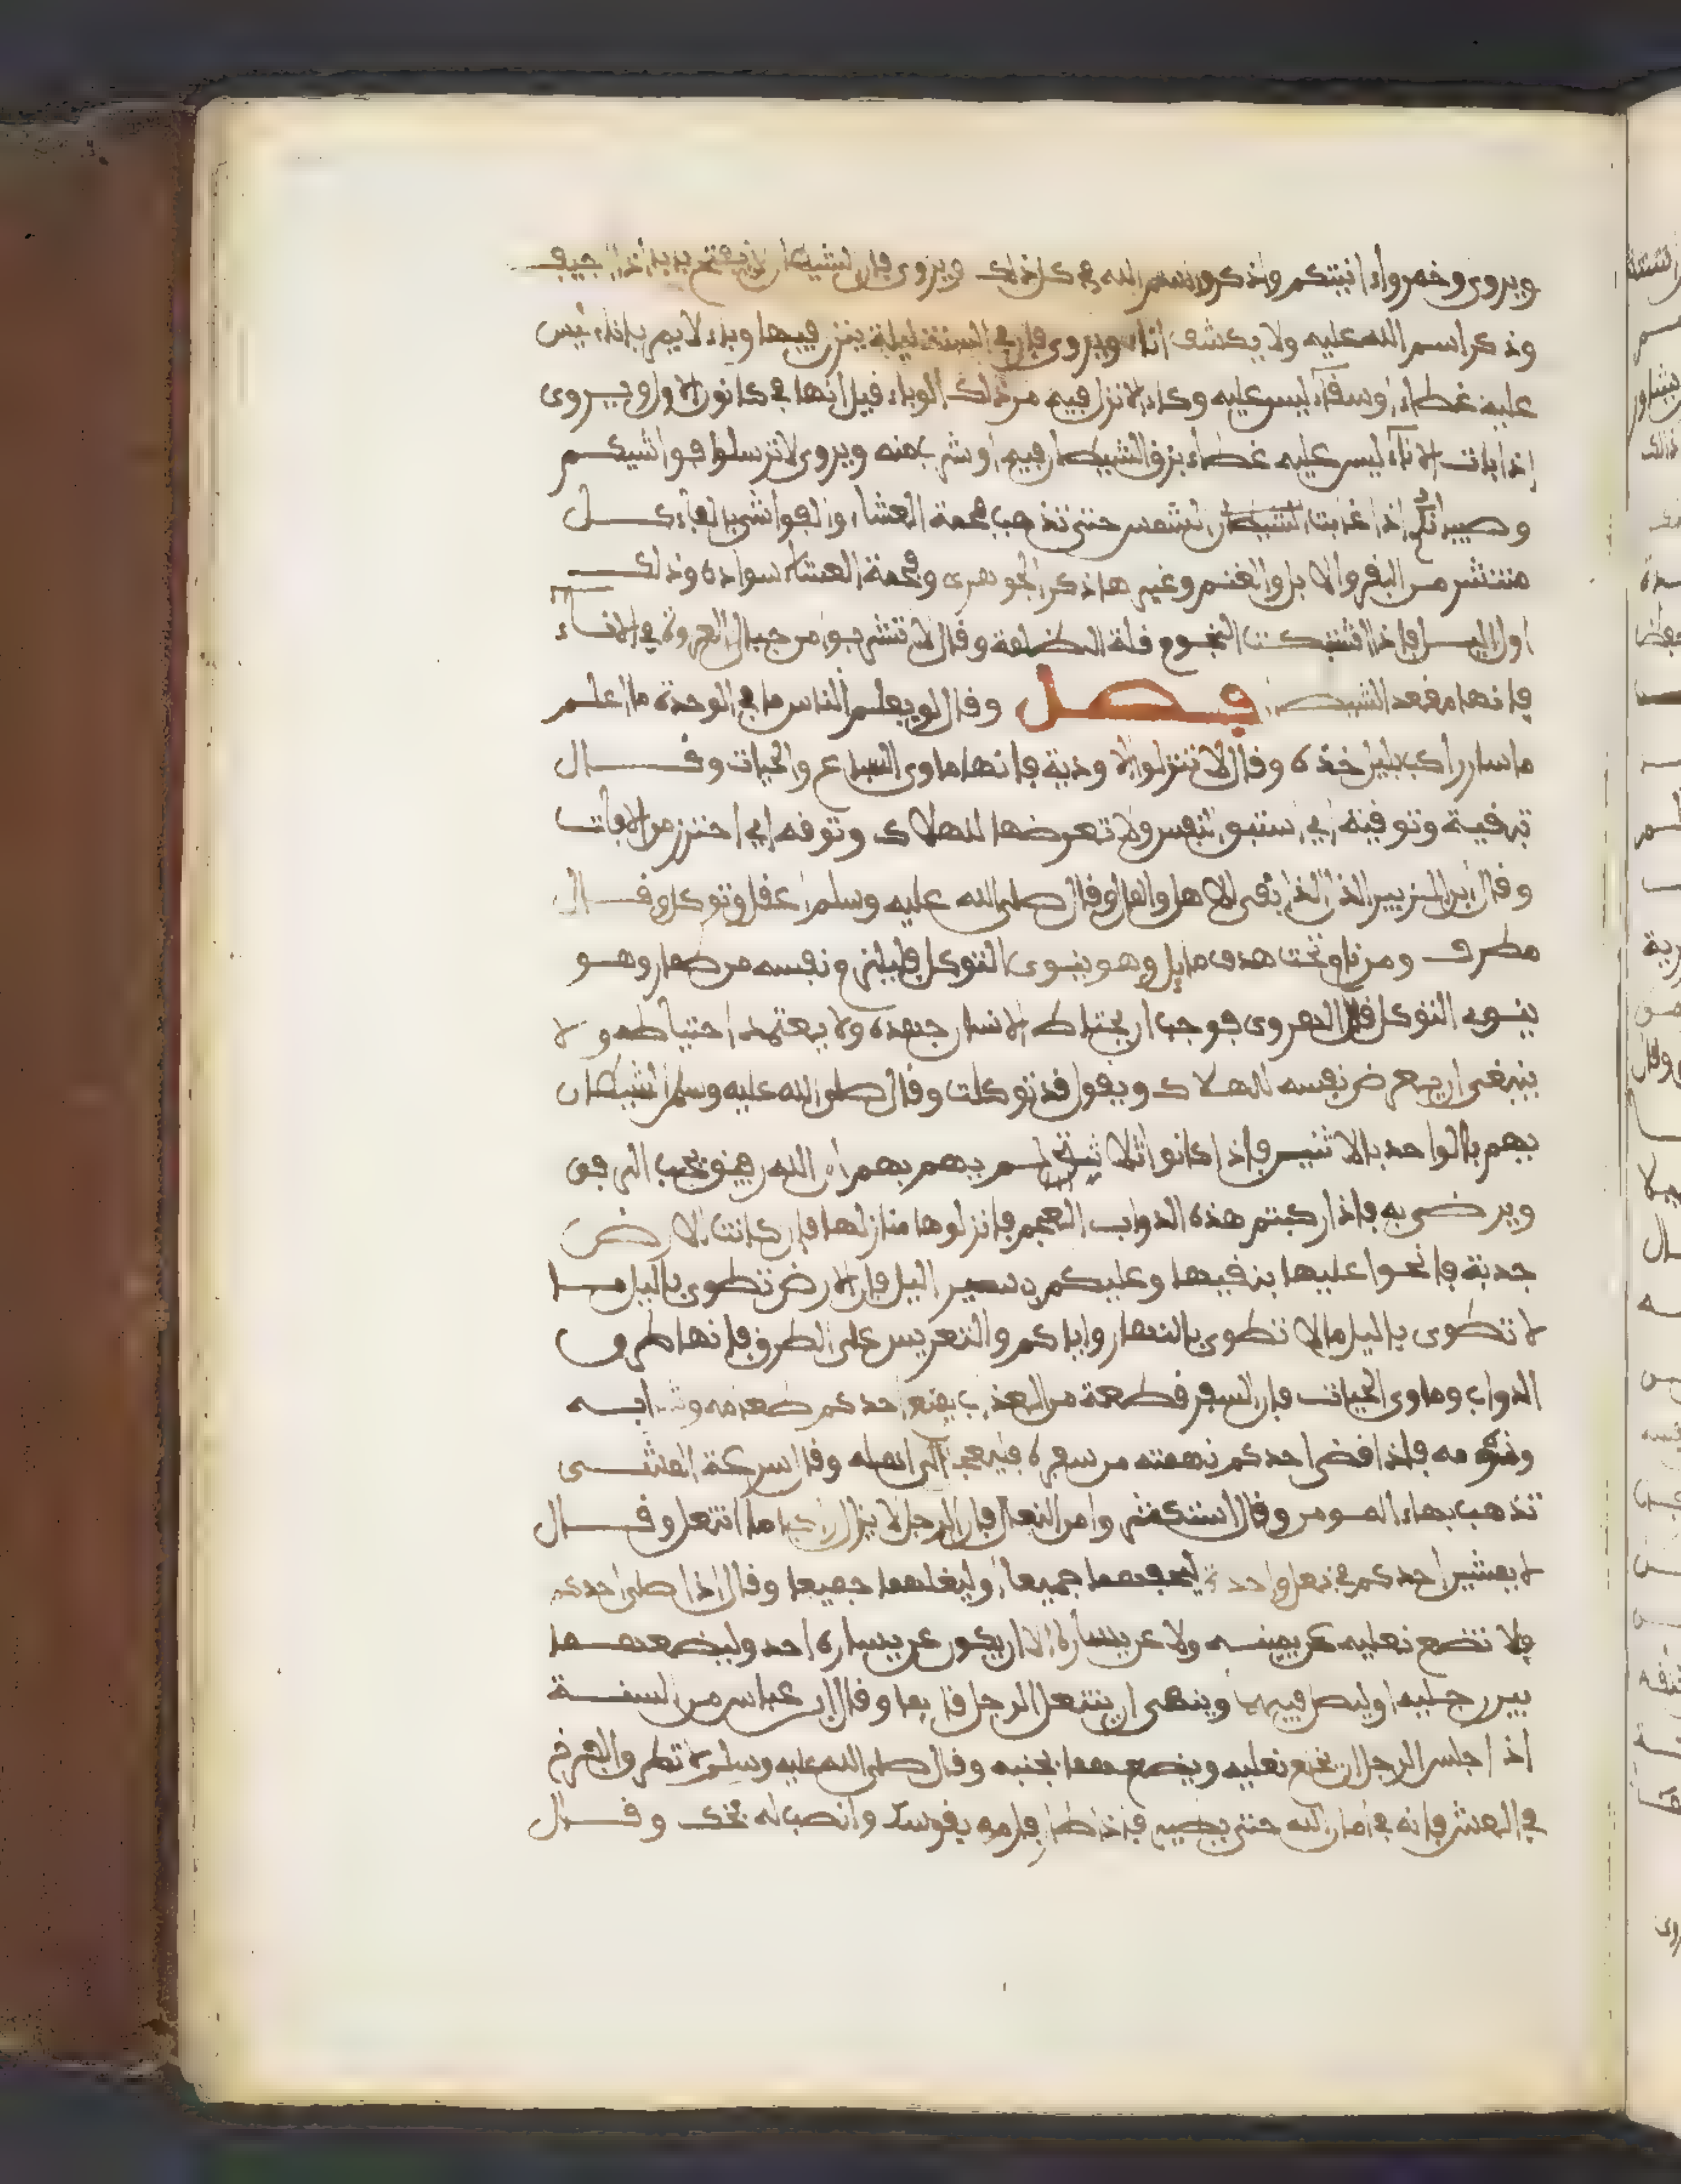 ويروى وخمروا انيتكم واذكروا اسم الله في كل ذلك ويروى فان الشيطان لا يفتح بابا اذا اجيف
وذكر اسم الله عليه ولا يكشف اناء ويروى فان في السنة ليلة ينزل فيها وباء لا يمر باناء ليس
عليه غطاء اوسقاء ليس عليه وكاء الا نزل فيه من ذلك الوباء قيل انها في كانون الاول ويروى
إذا بات الاناء ليس عليه غطاء بزق الشيطان فيه او شرب منه ويروى لا ترسلوا فواشيكم
وصبيانكم اذا غربت الشيطان الشمس حتى تذهب فحمة العشاء والفواشي بالفاء كل
منتشر من البقر والابل والغنم وغيرها ذكره الجوهري وفحمة العشاء سواده وذلك
اول الليل فاذا اشتبكت النجوم قلة الظلمة وقال لا تشربوا من حيال العروة في الاناء
فانها مقعد الشيطان فصل وقال لو يعلم الناس ما في الوحدة ما اعلم
ما سار راكب بليل وحده وقال لا تنزلوا الاودية فانها ماوى السباع والحيات وقال
تبقه وتوقه اي استبق النفس ولا تعرضها للهلاك وتوقه اي احترز من الافات
وقال ابن الزبير لاهل والمال وقال صلى الله عليه وسلم اعقل وتوكل وقال
مطرف ومن نام تحت هدف مايل وهو ينوي التوكل فليلق نفسه من طمار وهو
ينوي التوكل قال الهروي فوجب ان يحتاط الانسان جهده ولا يعتمد احتياطه ولا
ينبغي ان يعرض نفسه للهلاك ويقول قد توكلت وقال صلى الله عليه وسلم الشيطان
يهم بالواحد بالاثنين فاذا كانوا ثلاثة لم يهم بهم ان الله رفيق يحب الرفق
ويرضى به فاذا ركبتم هذه الدواب العجم فانزلوها منازلها فان كانت الارض
جدبة فانجوا عليها بنقيها وعليكم بسير الليل فان الارض تطوى بالليل ما
لا تطوى بالليل مالا تطوى بالنهار واياكم والتعريس على الطرق فانها طرق
الدواب وماوى الحيات فان السفر قطعة من العذاب يمنع احدكم طعامه وشرابه
ونومه فاذا قضى احدكم نهمته من سفره فليرجع الى اهله وقال سرعة المشي
تذهب بهاء المومن وقال استكثروا من النعال فان الرجل لا يزال راكبا ما انتعل وقال
لا يمشين احدكم في نعل واحدة ليحفهما جميعا او لينعلهما جميعا وقال اذا صلى احدكم
فلا تضع نعليه عن يمينه ولا عن يساره الا ان يكون عن يساره احد وليضعهما
بين رجليه او ليصل فيهما وينهى ان ينتعل الرجل قايما وقال ابن عباس من السنة
اذا جلس الرجل ان يخلع نعليه ويضعهما بجنبه وقال صلى الله عليه وسلم لا تطرقوا الفرخ
في العش فانه في امان الله حتى يطير فاذا طار فارمه بقوسك وانصب له فخك وقال